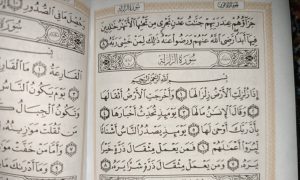 جَزَآؤُهُمْ عِندَ رَبِّهِمْ جَنَّٰتُ عَدْنٍ تَجْرِى مِن تَحْتِهَا ٱلْأَنْهَٰرُ خَٰلِدِينَ
فِيهَآ أَبَدًا رَّضِىَ ٱللَّهُ عَنْهُمْ وَرَضُوا۟ عَنْهُ ذَٰلِكَ لِمَنْ خَشِىَ رَبَّهُۥ ﴿٨﴾
سُورَةُ الزَّلْزَلَةِ
بِسْمِ ٱللَّهِ ٱلرَّحْمَٰنِ ٱلرَّحِيمِ
إِذَا زُلْزِلَتِ ٱلْأَرْضُ زِلْزَالَهَا ﴿١﴾ وَأَخْرَجَتِ ٱلْأَرْضُ أَثْقَالَهَا
﴿٢﴾ وَقَالَ ٱلْإِنسَٰنُ مَا لَهَا ﴿٣﴾ يَوْمَئِذٍ تُحَدِّثُ أَخْبَارَهَا ﴿٤﴾
بِأَنَّ رَبَّكَ أَوْحَىٰ لَهَا ﴿٥﴾ يَوْمَئِذٍ يَصْدُرُ ٱلنَّاسُ أَشْتَاتًا
لِّيُرَوْا۟ أَعْمَٰلَهُمْ ﴿٦﴾ فَمَن يَعْمَلْ مِثْقَالَ ذَرَّةٍ خَيْرًا
يَرَهُۥ ﴿٧﴾ وَمَن يَعْمَلْ مِثْقَالَ ذَرَّةٍ شَرًّا يَرَهُۥ ﴿٨﴾
حُصِّلَ مَا فِى ٱلصُّدُورِ
ٱلْقَارِعَةُ
يَوْمَ يَكُونُ
وَتَكُونُ ٱلْجِبَالُ
ثَقُلَتْ مَوَٰزِينُهُۥ
خَفَّتْ مَوَٰزِينُهُۥ
وَمَآ أَدْرَىٰكَ مَا